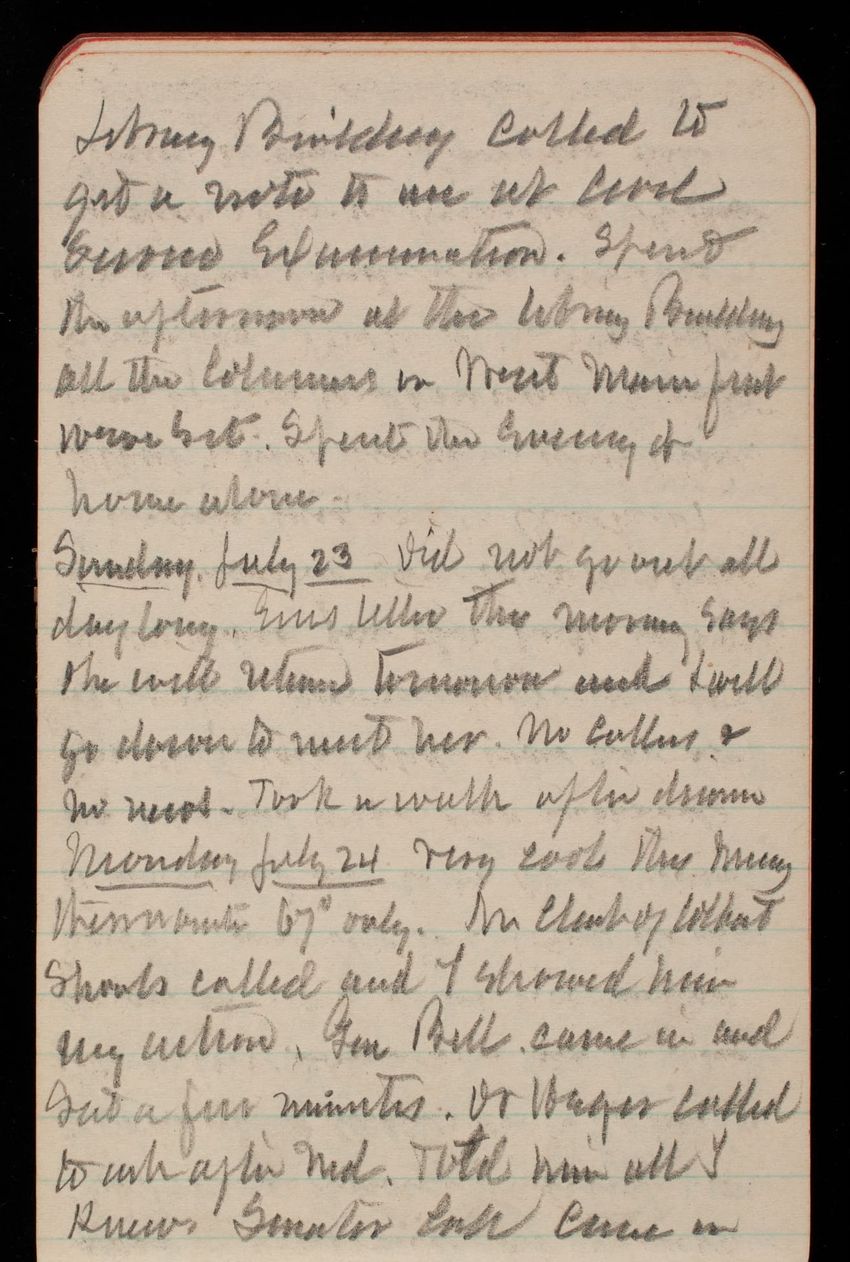 Library Building called to
get a note to me at Civil
Service Examination. Spent
the afternoon at the Library Building
all the Columns in West Main front
were set. Spent the Evening at
home alone.
Sunday, July 23 Did not go out all
day long. letter this morning says
she will return tomorrow and I will
go down to meet her. No callers &
no news. Took a walk after dinner
Monday July 24 very cool this morning
Thermometer 67° only. Mr Clark of
called and I showed him
my action. Gen Bell came in and
Sat a few minutes. Dr called
to ask after Ned. Told him all I
Knew. Senator came in